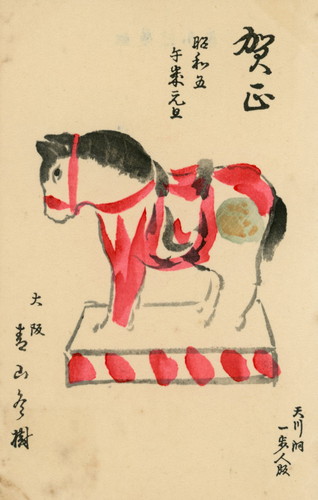 賀正
昭和五
午歳元旦
大阪
青山冬樹
天川洞
一歩人版